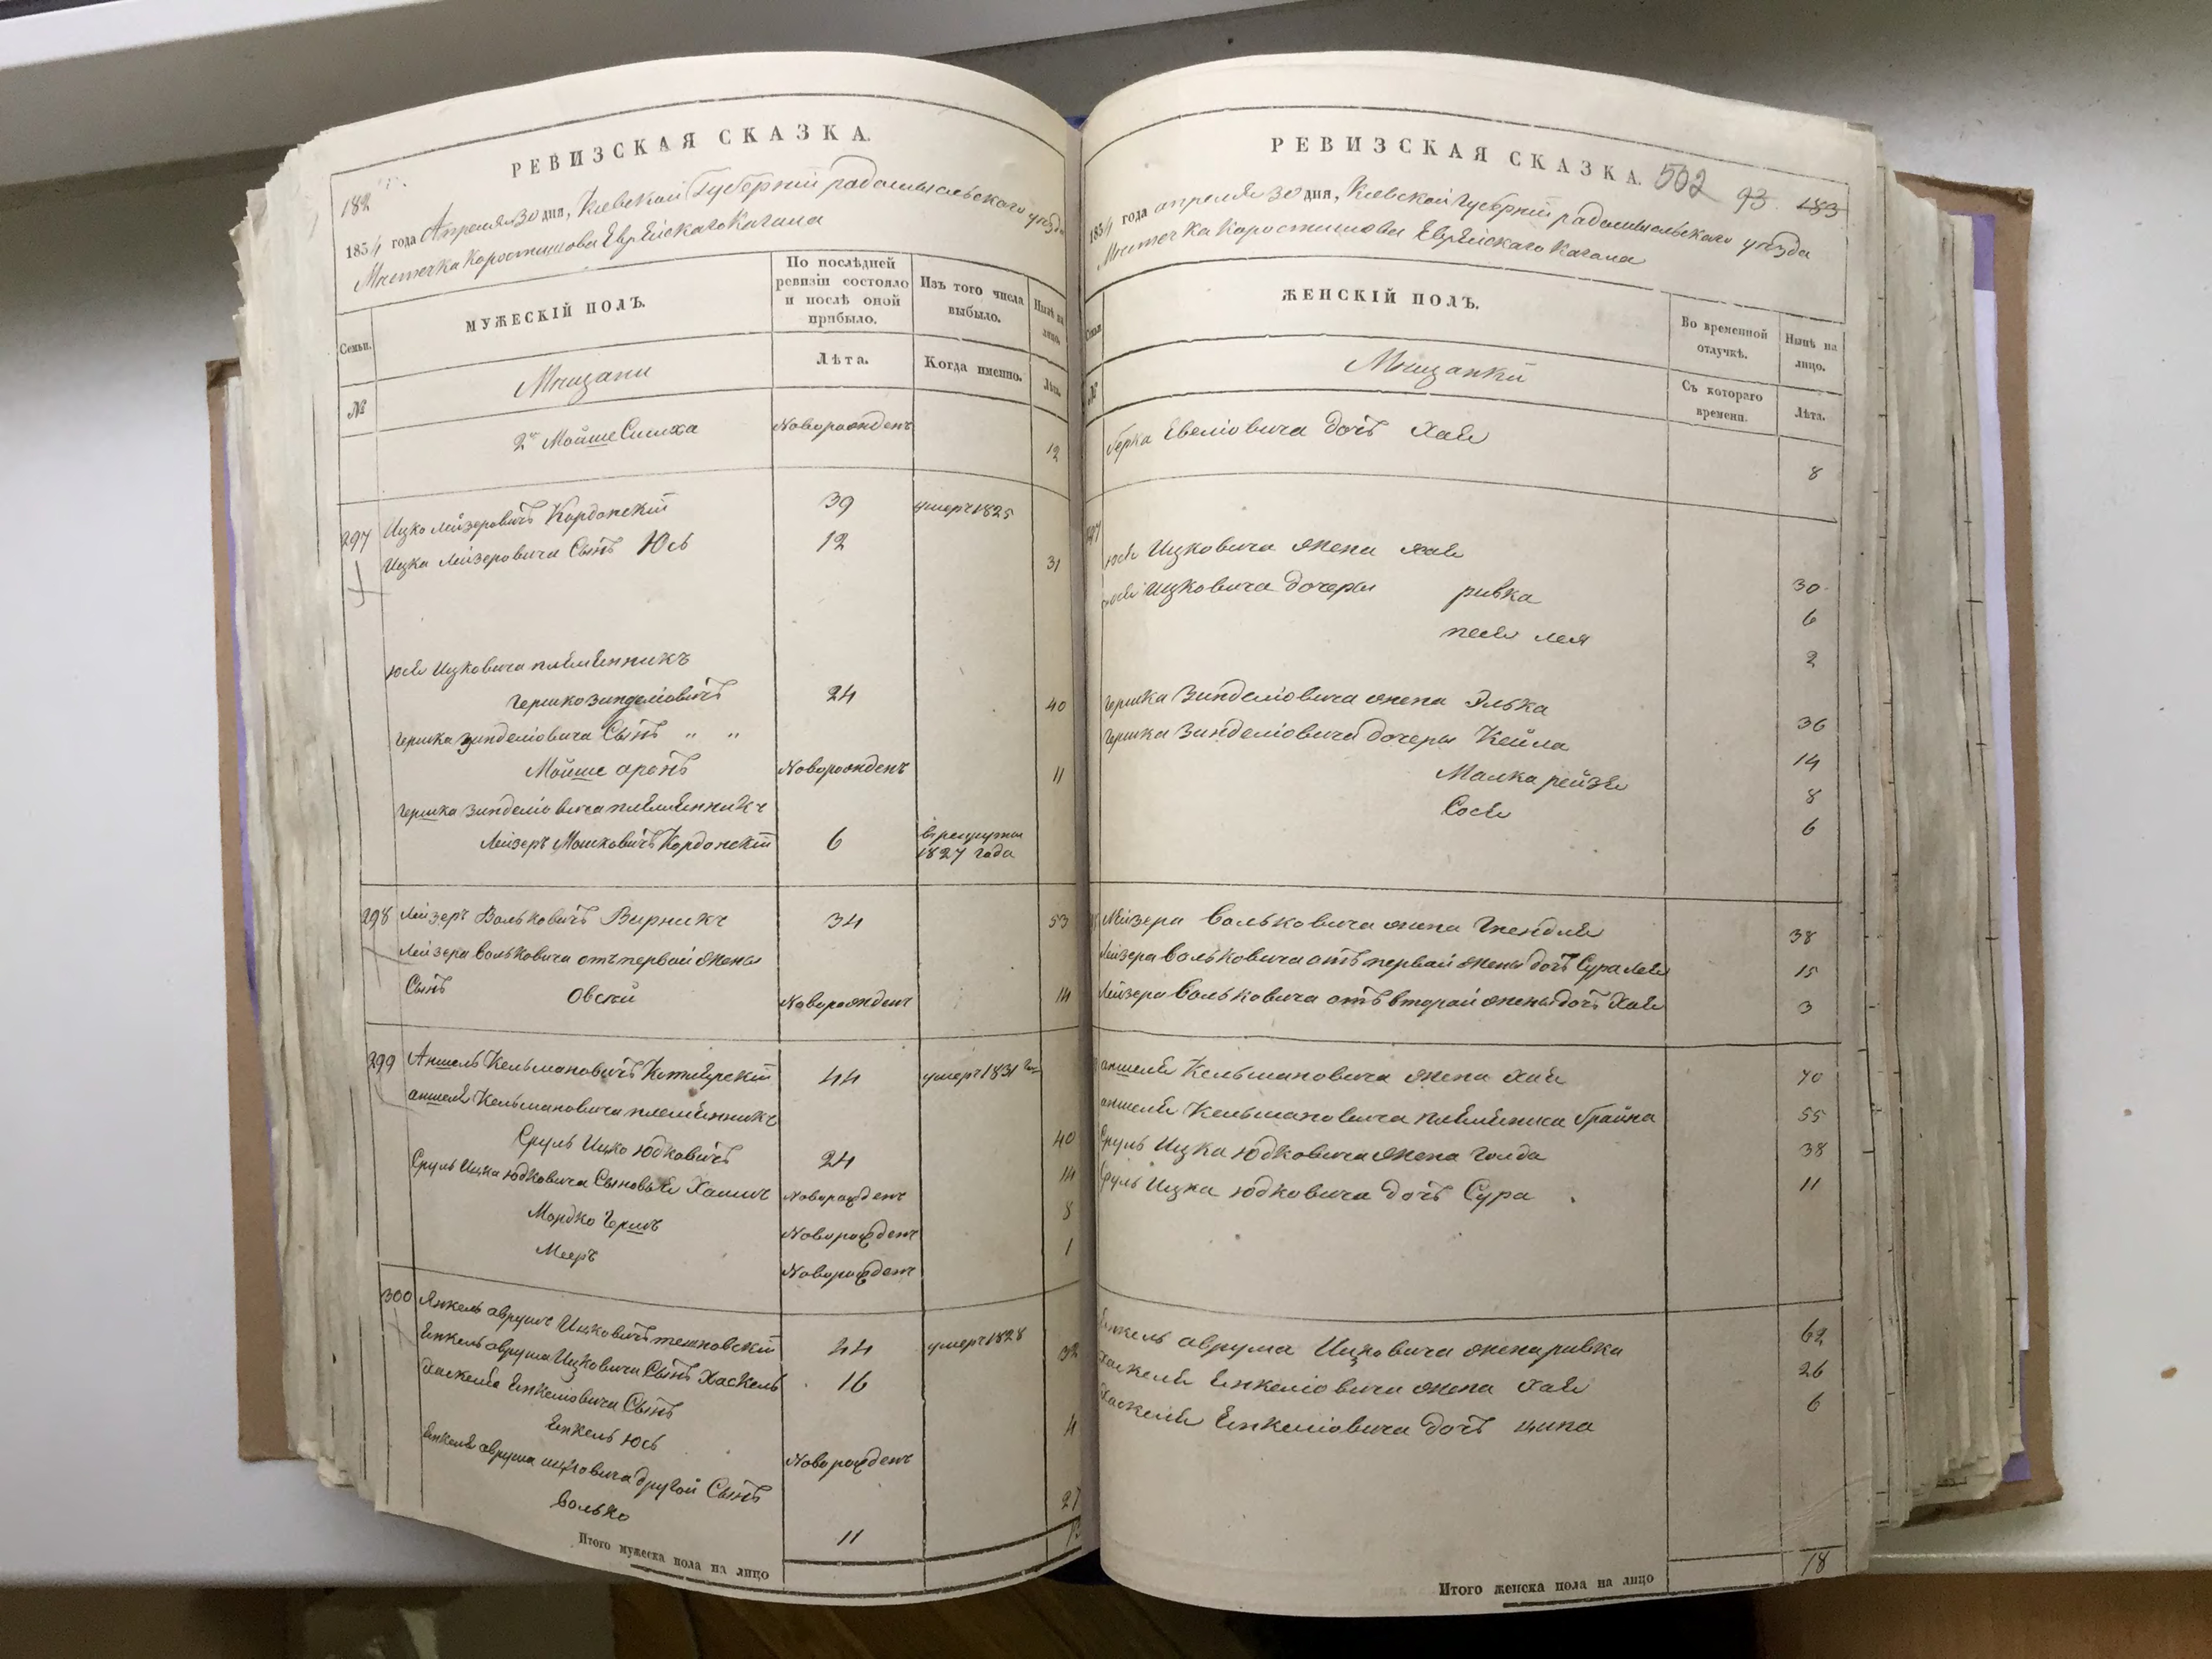 РЕВИЗСКАЯ СКАЗКА.
182
1834 года Апреля 30 дня, Киевской Губерніи радомысльского уезда
Местечка Коростишова Еврейскаго Кагала
Семьи.
МУЖЕСКІЙ ПОЛЪ.
По послѣдней ревизіи состояло и послѣ оной прибыло.
Изъ того числа выбыло.
Нынѣ на лицо.
№
Мещани
Лѣта.
Когда именно.
Лѣта.
2й Мойше Симха Новорожденъ 12
297 Ицко Лейзеровичъ Кордонскій 39 умеръ 1825
Ицка Лейзеровича Сынъ Юсь 12 31
Юся Ицковича племенникъ
Гершко Зинделіовичъ 24 40
Гершка Зинделіовича Сынъ " "
Мойше аронъ Новорожденъ 11
Гершка Зинделіовича племенникъ
Лейзеръ Мошковичъ Кордонскій 6 в рекруты 1827 года
298 Лейзеръ Вольковичъ Вирникъ 34 53
Лейзера Вольковича отъ первой жены
Сынъ Овсей Новорожденъ 14
299 Аншель Кельмановичъ 44 умеръ 1831
аншеля Кельмановича племенникъ
Сруль Ицко Юдковичъ 24 40
Сруль Ицка Юдковича Сыновья Хаимъ Новорожденъ 14
Мордко Гершъ Новорожденъ 8
Мееръ Новорожденъ 1
300 Янкель аврумъ Ицковичъ 44 умеръ 1828
Енкель аврума Ицковича Сынъ Хаскель 16 32
Хаскеля Енкеліовича Сынъ
Енкель Юсь Новорожденъ 4
Енкеля аврума ицковича другой Сынъ
Волько 11 27
Итого мужеска пола на лицо
РЕВИЗСКАЯ СКАЗКА. 502 93 183
1834 года апреля 30 дня, Киевской Губерніи радомысльского уезда
Местечка Коростишова Еврейскаго Кагала
Семьи
ЖЕНСКІЙ ПОЛЪ.
Во временной отлучкѣ.
Нынѣ на лицо.
№
Мещанки
Съ котораго времени.
Лѣта.
Берка Евеліовича дочъ Хая 8
297
Юся Ицковича жена хая 30
Юся Ицковича дочеры ривка 6
песя лея 2
Гершка Зинделіовича жена Элька 36
Гершка Зинделіовича дочеры Кейла 14
Малка рейзя 8
Сося 6
Лейзера Вольковича жена 38
Лейзера Вольковича отъ первой жены дочъ Сура лея 15
Лейзера Вольковича отъ второй жены дочъ Хая 3
аншеля Кельмановича жена Хая 70
аншеля Кельмановича племеница Грайна 55
Сруль Ицка Юдковича жена Голда 38
Сруль Ицка Юдковича дочъ Сура 11
Енкель аврума Ицковича жена ривка 62
Хаскеля Енкеліовича жена Хая 26
Хаскеля Енкеліовича дочъ ципа 6
Итого женска пола на лицо 18